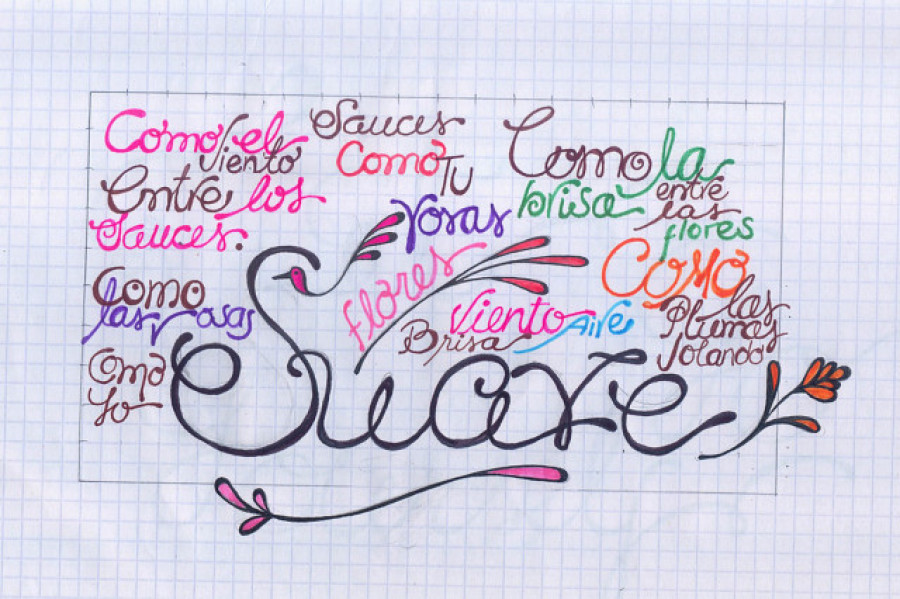 Como el
Viento
Entre los
Sauces.
Sauces
Como Tu
rosas
Como la
brisa entre
las
flores
Como
las rosas
flores
Viento
Aire
Brisa
Como
las
Plumas
Volando
Como
Yo
Suave